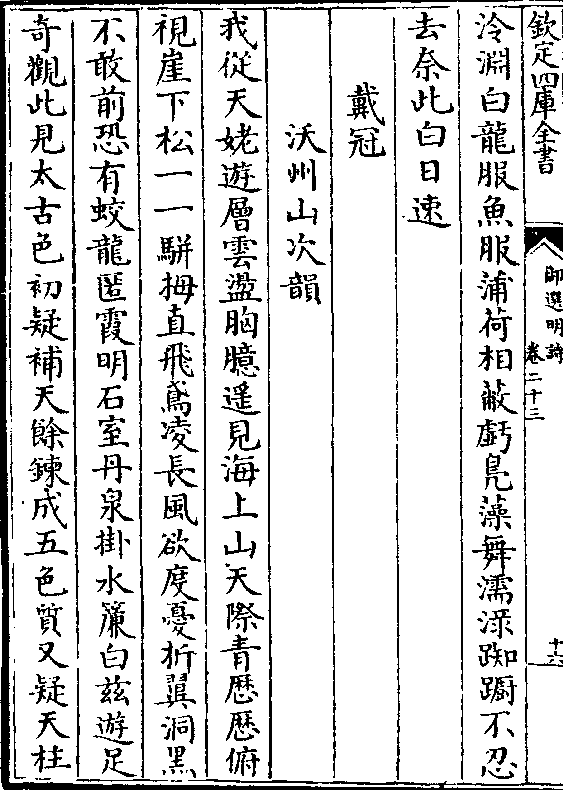 欽定四庫全書
御選明詩
卷二十三
十六
泠淵白龍服魚服蒲荷相蔽虧鳧藻舞濡淥踟躕不忍
去奈此白日速
戴冠
沃州山次韻
我從天姥遊層雲盪胸臆遥見海上山天際青歴歴俯
視崖下松一一駢拇直飛鳶凌長風欲度憂折翼洞黑
不敢前恐有蛟龍匿霞明石室丹泉掛水簾白兹遊足
奇觀此見太古色初疑補天餘鍊成五色質又疑天柱